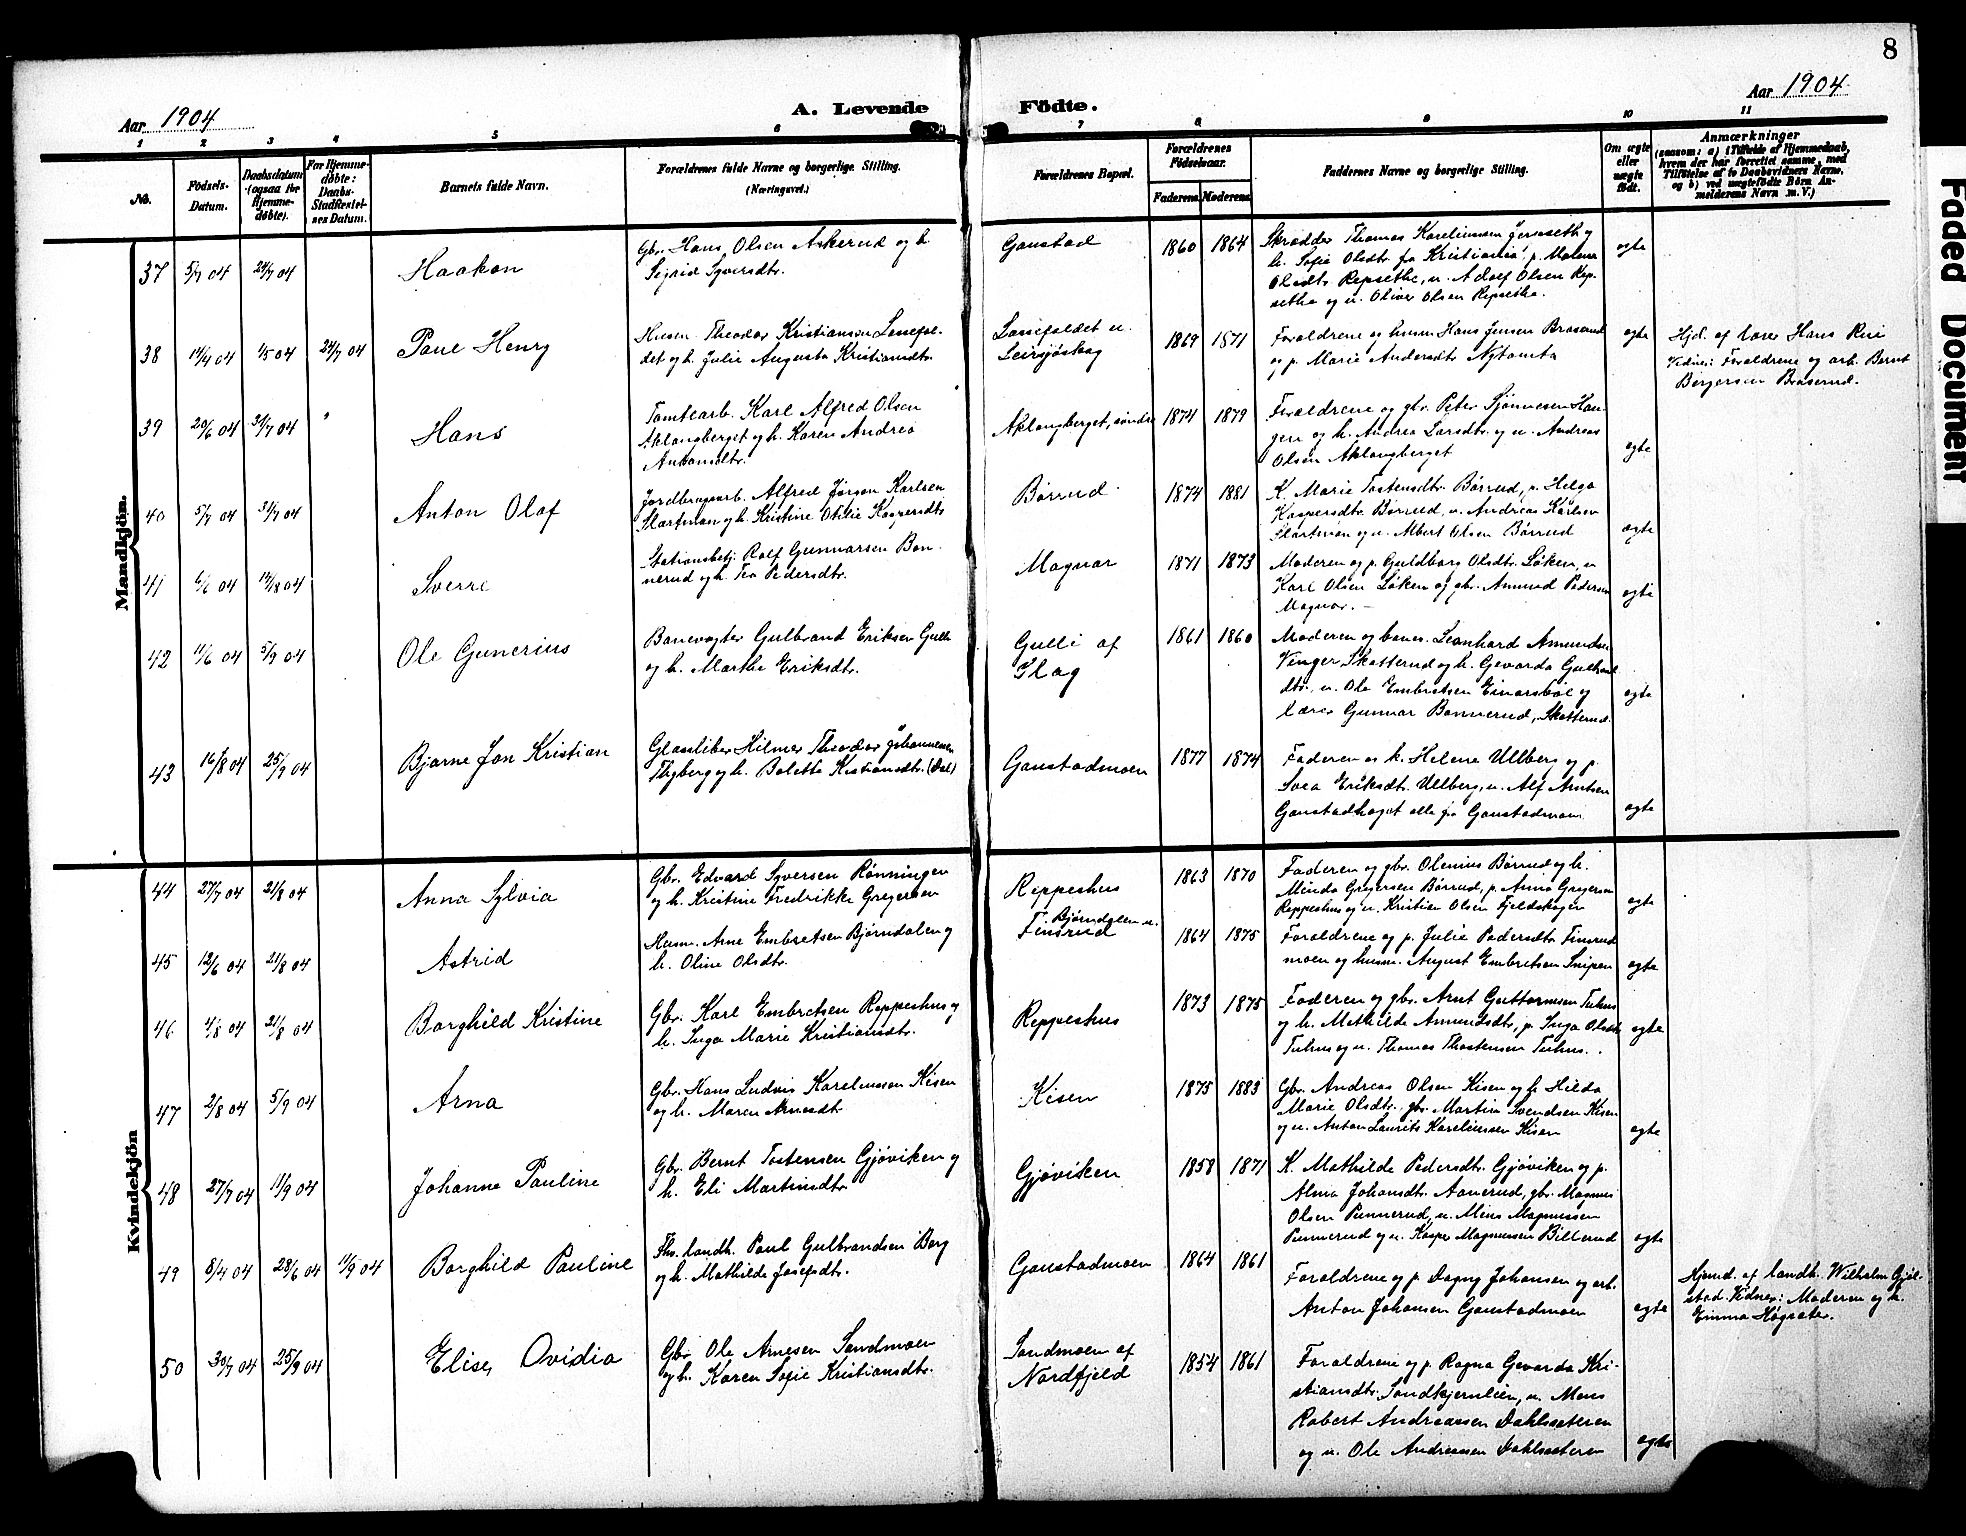 8
Aar 1904
A. Levende Födte.
Aar 1904
1 2 3 4 5 6 7 8 9 10 11
No.
Födsels-Datum.
Daabsdatum (ogsaa for Hjemmedöbte).
For Hjemmedöbte: Daabs-Stadfestelses Datum.
Barnets fulde Navn.
Forældrenes fulde Navne og borgerlige Stilling.
(Næringsvei.)
Forældrenes Bopæl.
Forældrenes Födselsaar.
Faderens Moderens
Faddernes Navne og borgerlige Stilling.
Om ægte eller uægte födt.
Anmærkninger
(saasom: a) i Tilfælde af Hjemmedaab, hvem der har forrettet samme, med Tilföielse af to Daabsvidners Navne, og b) ved uægtefödte Börn Anmelderens Navn m. V.)
Mandkjön.
37 5/7 04 24/7 04 Haakon
Gbr. Hans Olsen Askerud og h.
Sigrid Syversdtr.
Gaustad 1860 1864
Skrædder Thomas Karelinussen Jerpseth og
h. Sofie Olsdtr. fra Kristiania, p. Malene
Olsdtr. Repsethe, u. Adolf Olsen Rep-
sethe og u. Oliver Olsen Repsethe.
ægte
38 14/4 04 1/5 04 24/7 04 Paul Henry
Husm. Theodor Kristiansen Lassefol-
det og h. Julie Augusta Kristiansdtr.
Lassefoldet u.
Leirsjöskog
1869 1871
Forældrene og husm. Hans Jensen Braserud
og p. Marie Andersdtr. Nytomta
ægte
Hjd. af lærer Hans Risi
Vidner: Forældrene og arb. Bernt
Bergersen Braserud.
39 20/6 04 31/7 04 " Hans
Tomtearb. Karl Alfred Olsen
Aklangberget og h. Karen Andrea
Antonsdtr.
Aklangberget, söndre 1874 1879
Forældrene og gbr. Peter Sjönnesen Hau-
gen og h. Andrea Larsdtr. og u. Andreas
Olsen Aklangberget
ægte
40 5/7 04 31/7 04 Anton Olaf
Jordbrugsarb. Alfred Jörgen Karlsen
Slartmon og h. Kristine Otilie Kaspersdtr.
Börrud 1874 1881
K. Marie Tostensdtr. Börrud, p. Helga
Kaspersdtr. Börrud, u. Andreas Karlsen
Slartmon og u. Albert Olsen Börrud
ægte
41 6/6 04 14/8 04 Sverre
Stationsbetj. Rolf Gunnarsen Bon-
nerud og h. Tea Pedersdtr.
Magnor 1871 1873
Moderen og p. Guldborg Olsdtr. Löken, u.
Karl Olsen Löken og gbr. Amund Pedersen
Magnor.
ægte
42 11/6 04 5/9 04 Ole Gunerius
Banevogter Gulbrand Eriksen Gulli
og h. Marthe Eriksdtr.
Gulli af
Flag
1861 1860
Moderen og banev. Leonhard Amundsen
Vinger Skotterud og h. Gevarda Gulbrands
dtr., u. Ole Embretsen Einarsböl og
lærer Gunnar Bonnerud, Skotterud.
ægte
43 16/8 04 25/9 04 Bjarne Jon Kristian
Glassliber Hilmer Theodor Johannesen
Thyberg og h. Bolette Kristiansdtr. (Dal)
Gaustadmoen 1877 1874
Faderen og k. Helene Ullberg og p.
Svea Eriksdtr. Ullberg, u. Alf Arntsen
Gaustadhaget alle fra Gaustadmoen
ægte
Kvindekjön
44 27/7 04 21/8 04 Anna Sylvia
Gbr. Edvard Syversen Rönningen
og h. Kristine Fredrikke Gregersen
Reppeshus 1863 1870
Faderen og gbr. Olenius Börrud og h.
Minda Gregersen Börrud, p. Anna Gregersen
Reppeshus og u. Kristian Olsen Fjeldskogen
ægte
45 12/6 04 21/8 04 Astrid
Husm. Arne Embretsen Björndalen og
h. Oline Olsdtr.
Björndalen u.
Finsrud
1864 1875
Forældrene og p. Julie Pedersdtr. Finsrud
moen og husm. August Embretsen Snipen
ægte
46 1/8 04 21/8 04 Borghild Kristine
Gbr. Karl Embretsen Reppeshus og
h. Inga Marie Kristiansdtr.
Reppeshus 1873 1875
Faderen og gbr. Arnt Guttormsen Tuhus
og h. Mathilde Amundsdtr, p. Inga Olsdtr
Tuhus og u. Thomas Thostensen Tuhus.
ægte
47 2/8 04 5/9 04 Arna
Gbr. Hans Ludvig Karelinusen Kisen
og h. Maren Arnesdtr.
Kisen 1875 1883
Gbr. Andreas Olsen Kisen og h. Hilda
Marie Olsdtr., gbr. Martin Svendsen Kisen
og u. Anton Laurits Karelinussen Kisen
ægte
48 27/7 04 11/9 04 Johanne Pauline
Gbr. Bernt Tostensen Gjöviken og
h. Eli Martinsdtr.
Gjöviken 1858 1871
K. Mathilde Pedersdtr. Gjöviken og p.
Alma Johansdtr. Aanerud, gbr. Magnus
Olsen Punnerud, u. Mens Magnussen
Punnerud og u. Kasper Magnussen Billerud
ægte
49 8/4 04 28/6 04 11/9 04 Borghild Pauline
Fhv. landh. Paul Gulbrandsen Berg
og h. Mathilde Josefsdtr.
Gaustadmoen 1864 1861
Forældrene og p. Dagny Johansen og arb.
Anton Johansen Gaustadmoen
ægte
Hjemd. af landh. Wilhelm Gjöl-
stad. Vidner: Moderen og k.
Emma Högsæter.
50 30/7 04 25/9 04 Elise Ovidia
Gbr. Ole Arnesen Sandmoen
og h. Karen Sofie Kristiansdtr.
Sandmoen af
Nordfjeld
1854 1861
Forældrene og p. Ragna Gevarda Kri-
stiansdtr. Sandkjernlien, u. Mens
Robert Andreassen Dahlsæteren
og u. Ole Andreassen Dahlsæteren
ægte
Faded Document